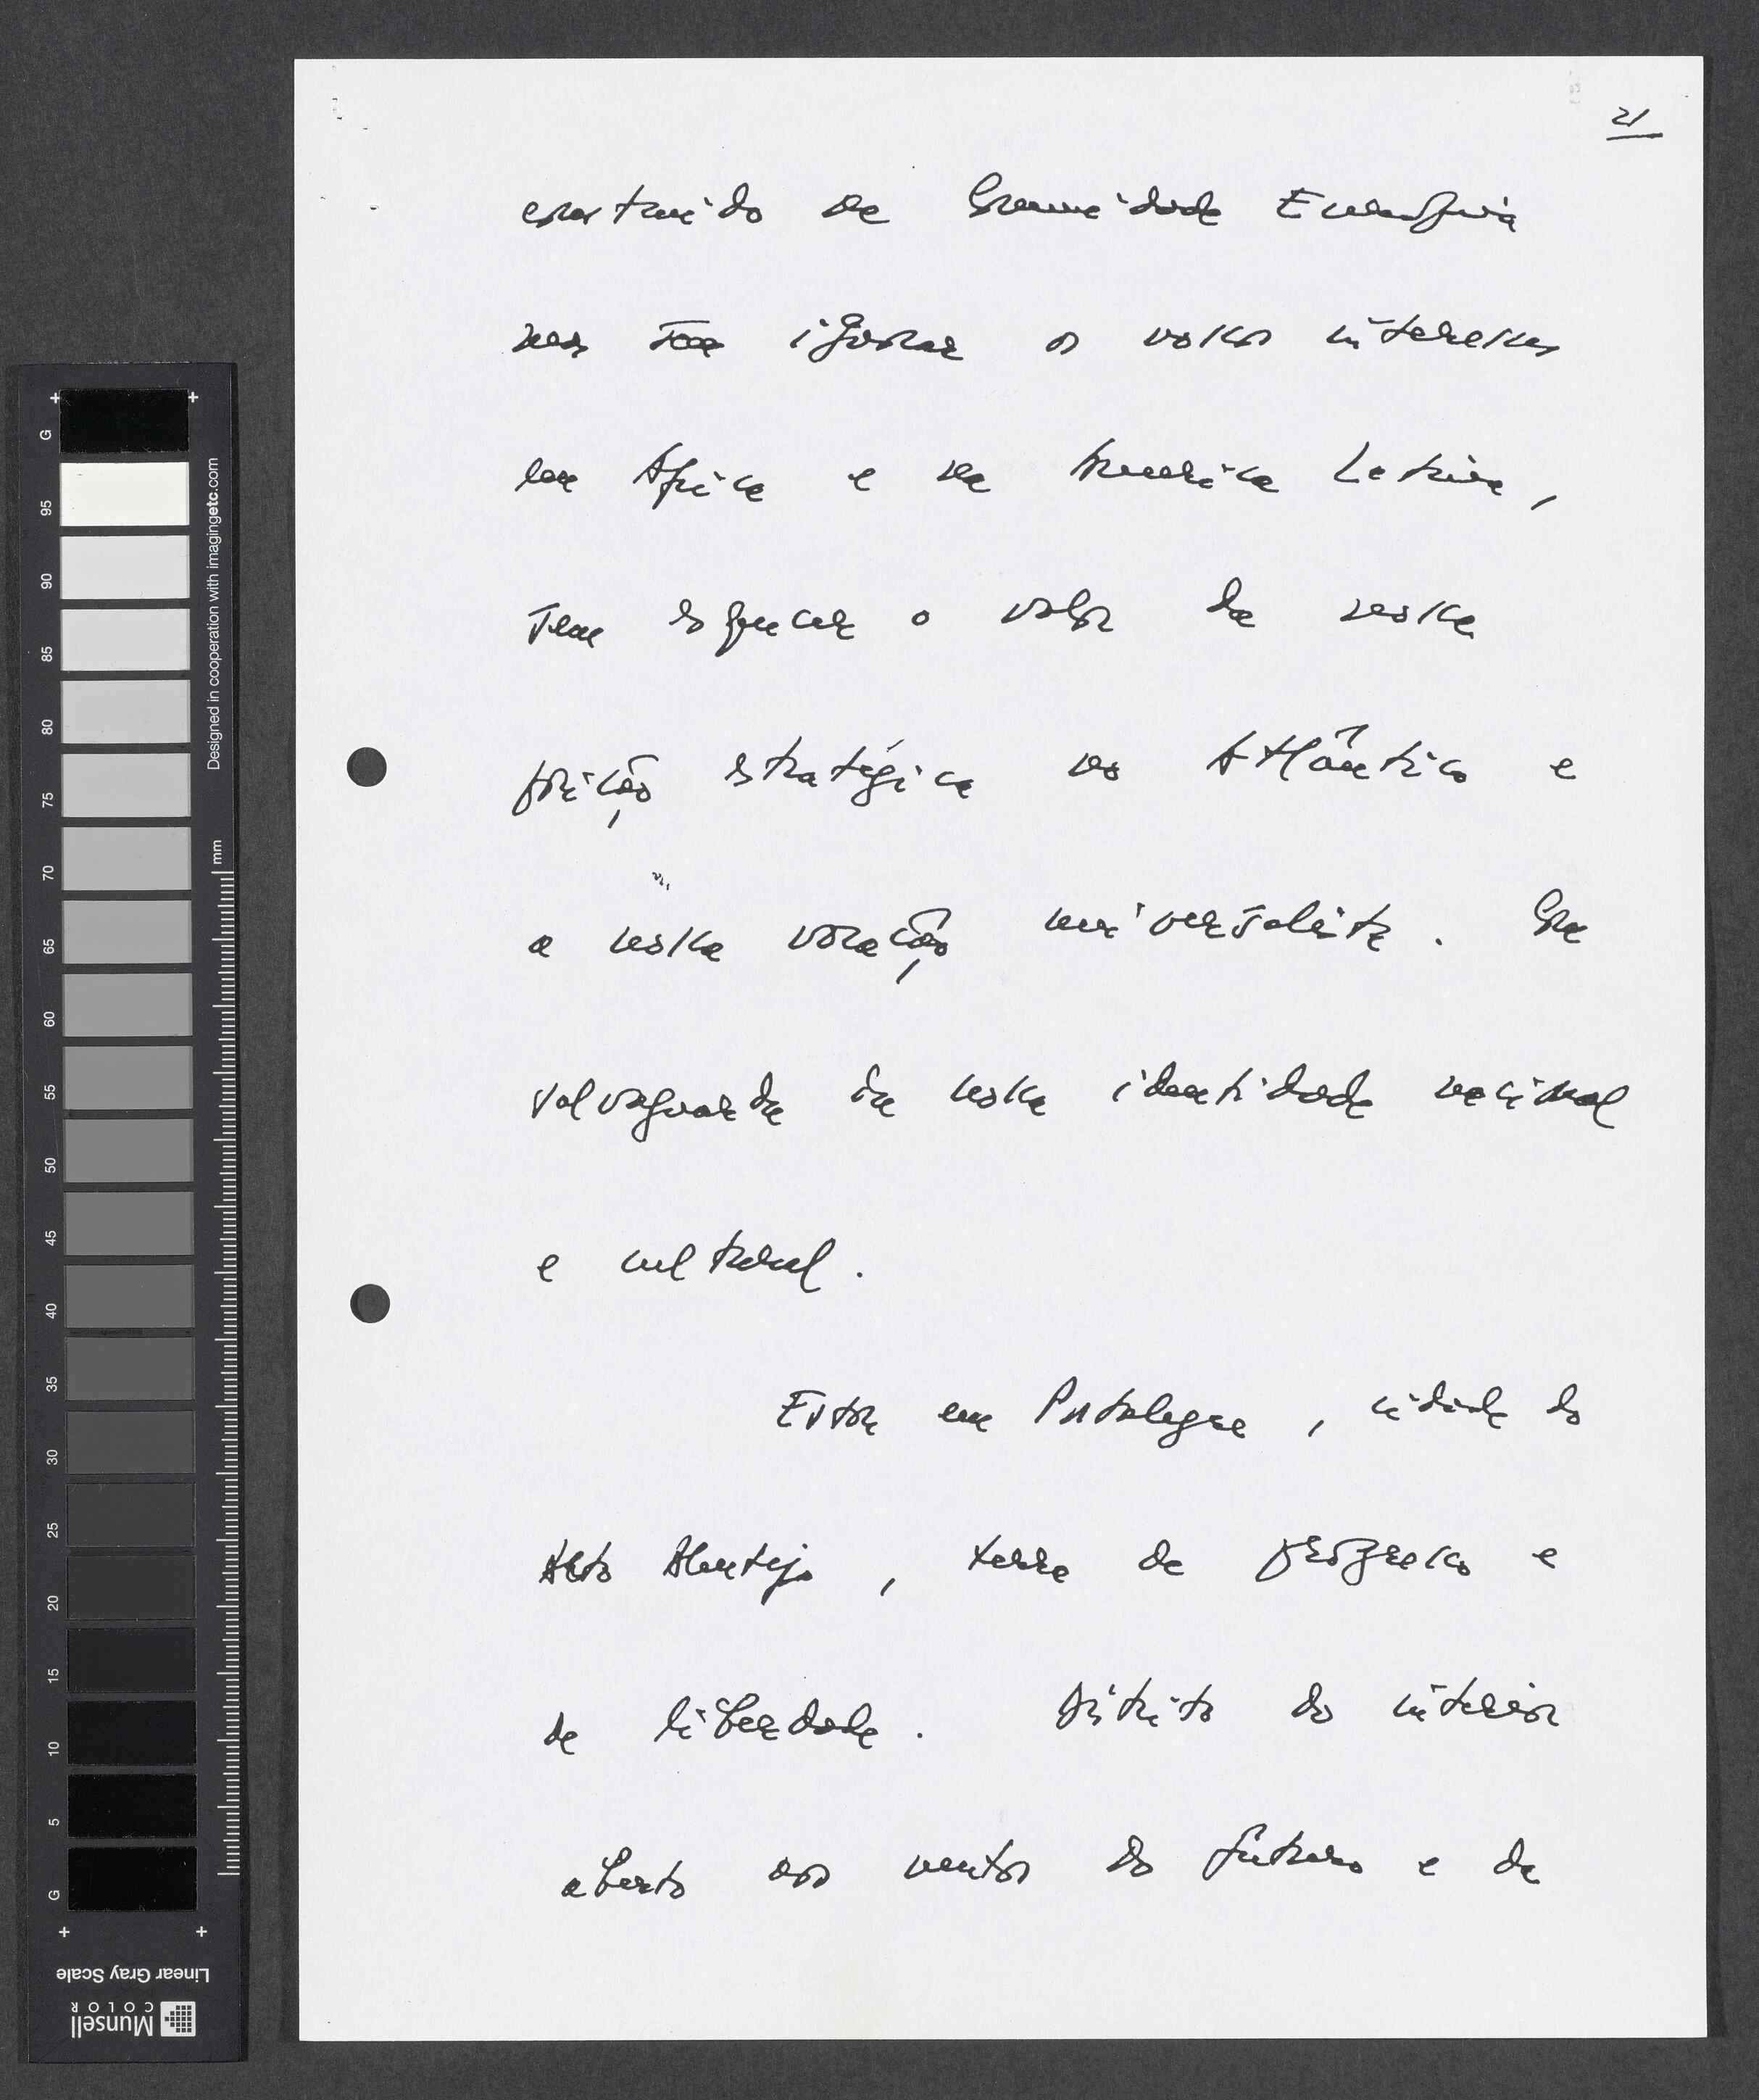 21
construído na Comunidade Europeia
mas sem ignorar os nossos interesses
em África e na America Latina,
sem esquecer o valor da nossa
posição estratégica no Atlântico e
a nossa vocação universalista. Na
salvaguarda da nossa identidade nacional
e cultural.
Estou em Portalegre, cidade do
Alto Alentejo, terra de progresso e
de liberdade. Distrito do interior
aberto aos ventos do futuro e da
G
95
90
85
80
75
70
65
60
55
50
45
40
35
30
25
20
15
10
5
G
Designed in cooperation with imagingetc.com
mm
Linear Gray Scale
Munsell
COLOR